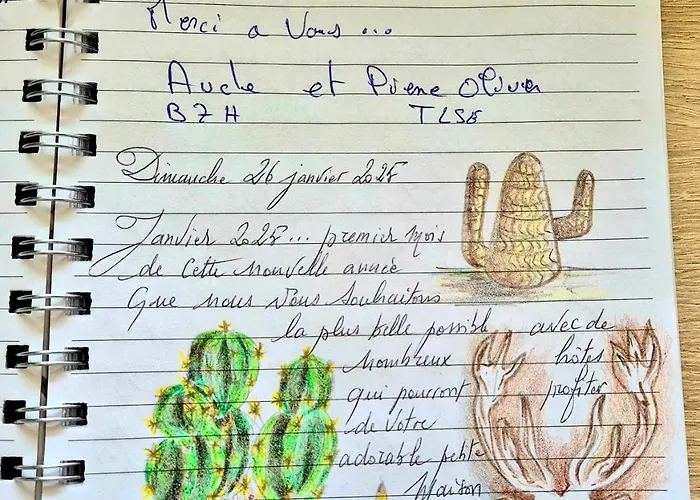 Merci a Vous ...
Aude et Pierre Olivier
BZH TLSE
Dimanche 26 janvier 2025
Janvier 2025 ... premier mois
de cette nouvelle année
Que nous Vous Souhaitons
la plus belle possible, avec de
nombreux hôtes
qui pourront profiter
de Votre
adorable petite
Maison